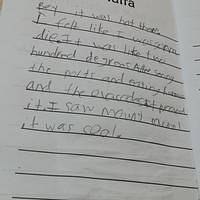 Boy it was hot there
I felt like I was gonna
die. It was like two
hundred degrees. After seeing
the ports and eating
and the
it. I saw
it was cool.